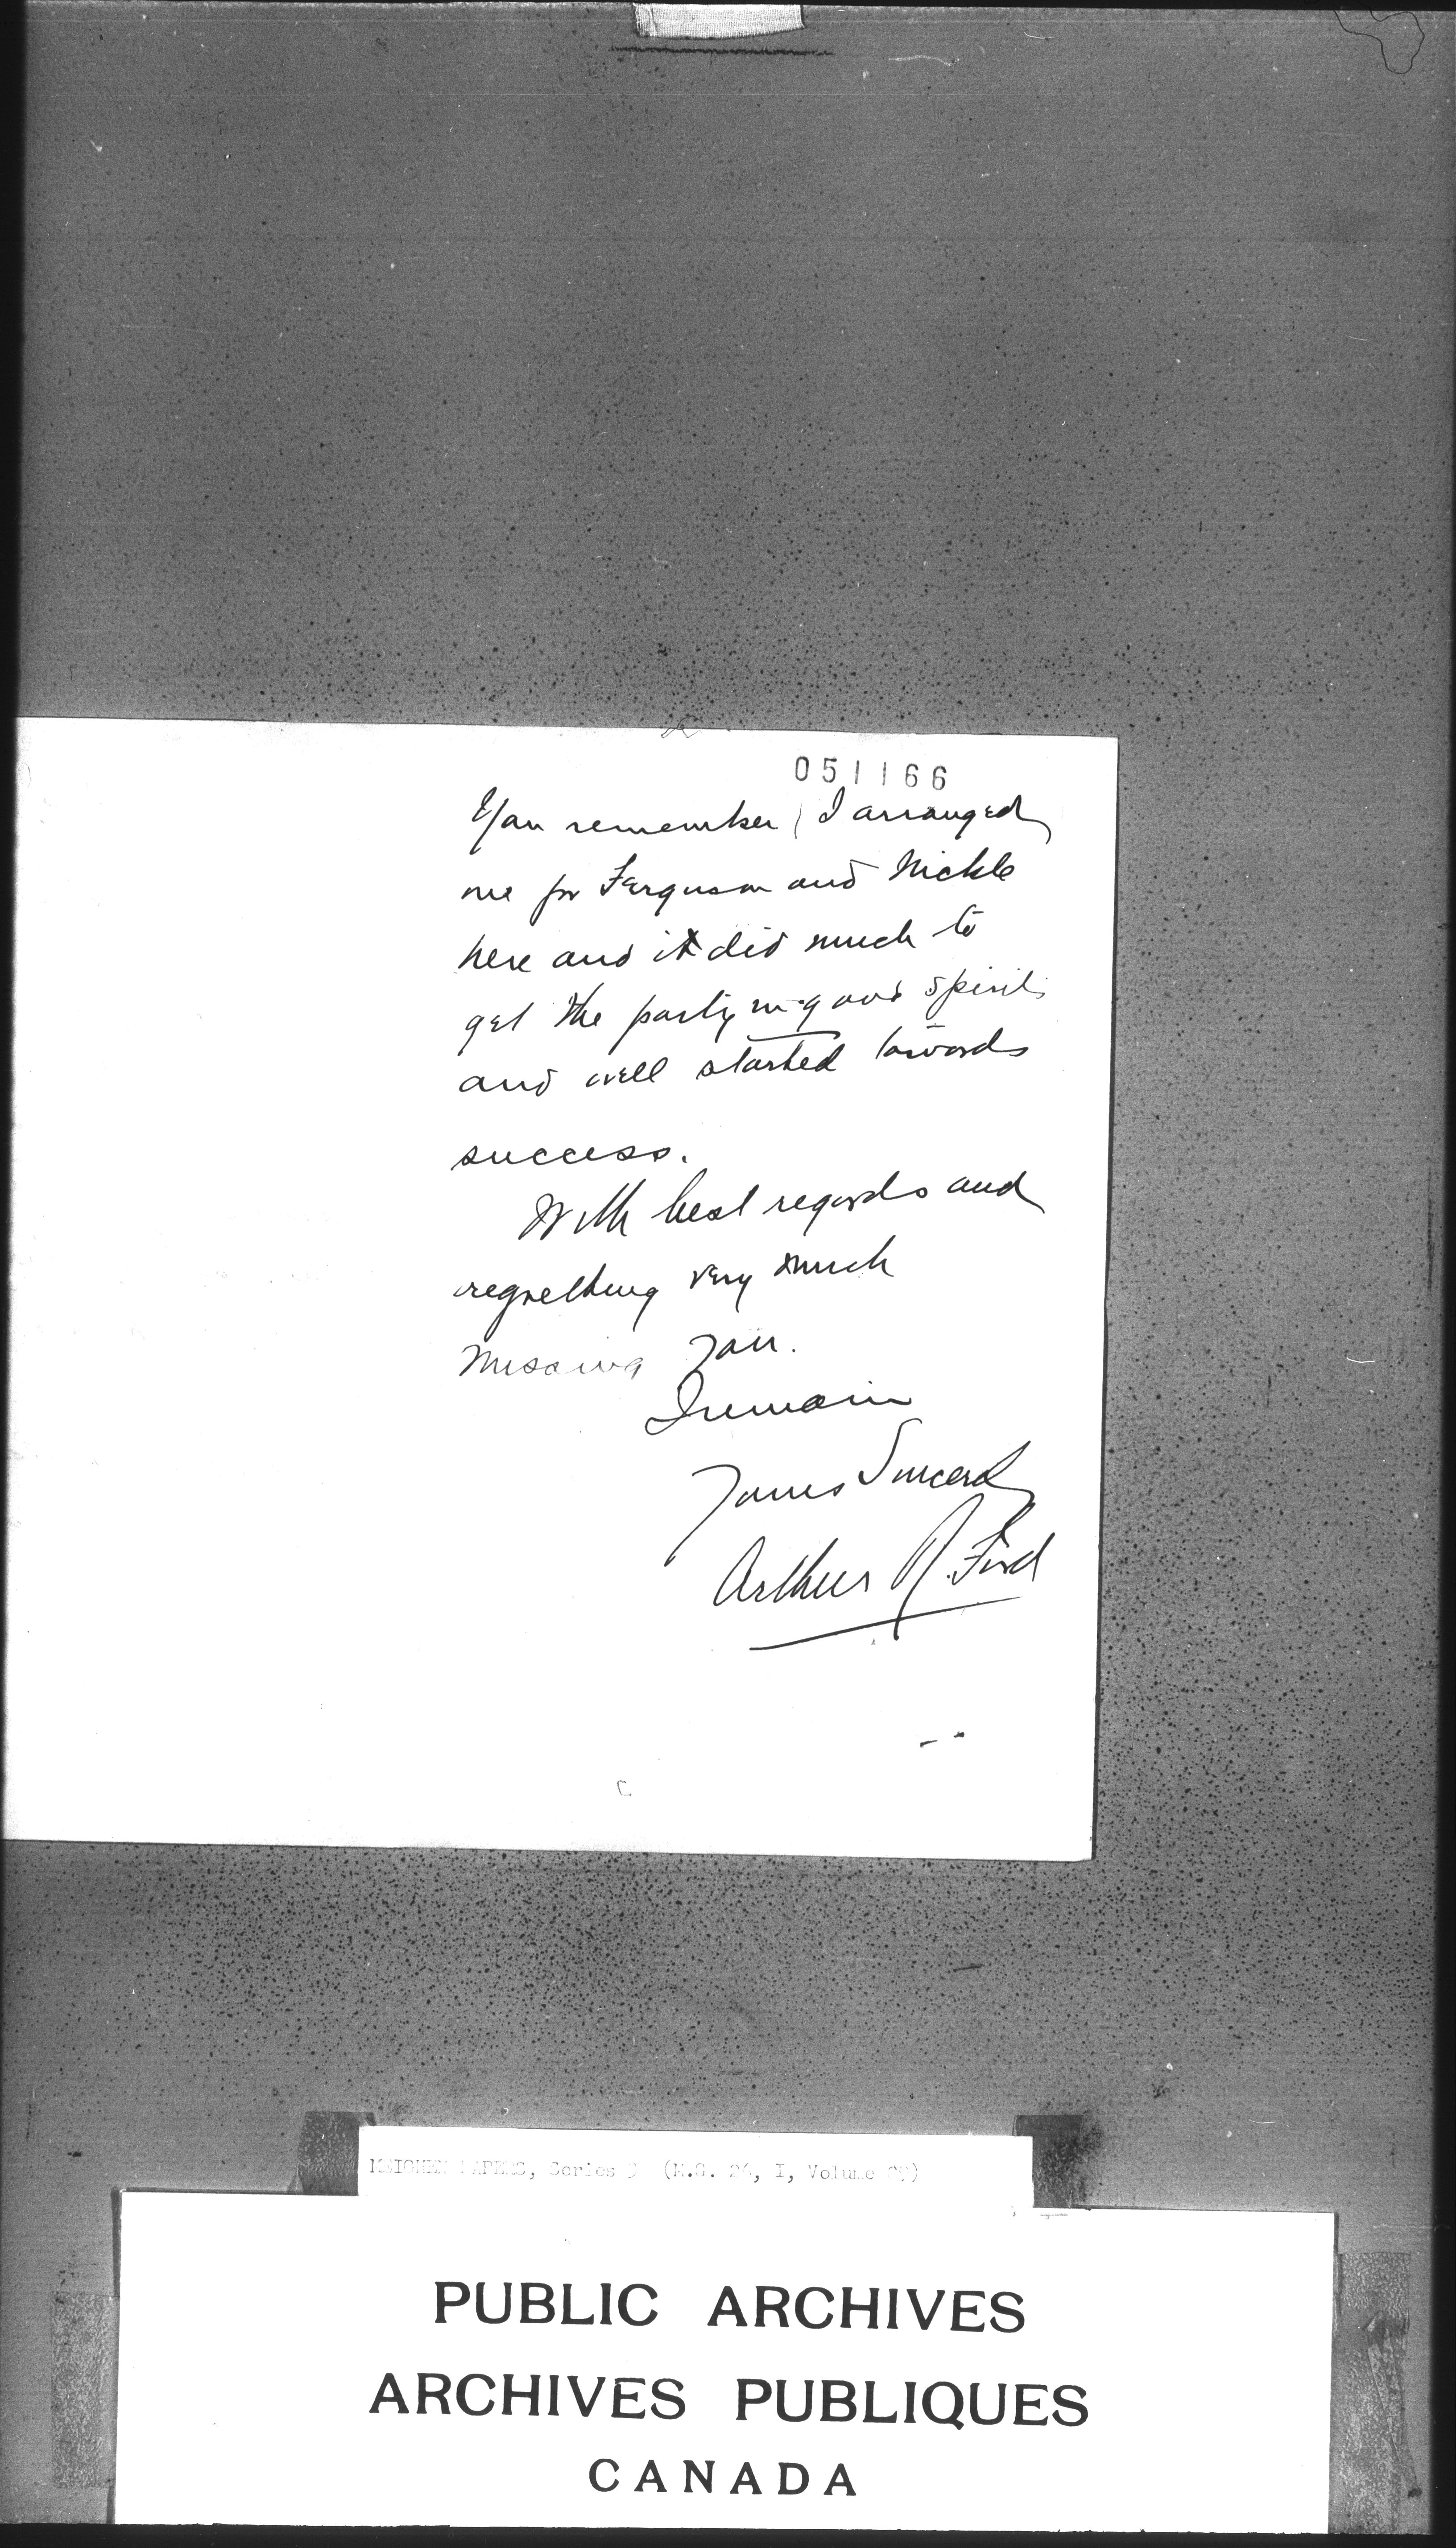 051166
You remember I arranged
one for Ferguson and Nickle
here and it did much to
get the party in good spirits
and well started towards
success.
With best regards and
regretting very much
missing you.
I remain
Yours Sincerely
Arthur R. Ford
MEIGHEN PAPERS, Series 3 (M.G. 26, I, Volume
PUBLIC ARCHIVES
ARCHIVES PUBLIQUES
CANADA